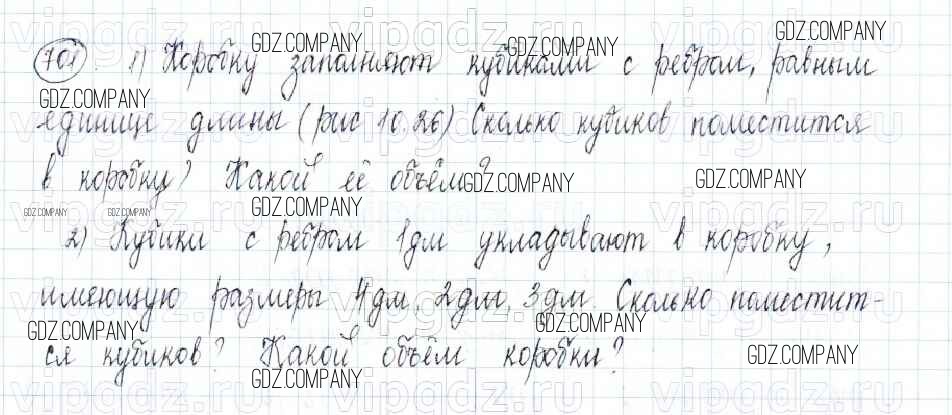 701 1) Коробку заполняют кубиками с ребром, равным
единице длины (рис 10.26) Сколько кубиков поместится
в коробку? Какой её объём?
2) Кубики с ребром 1дм укладывают в коробку,
имеющую размеры 4дм, 2дм, 3дм. Сколько поместит-
ся кубиков? Какой объём коробки?
GDZ.COMPANY
GDZ.COMPANY
GDZ.COMPANY
GDZ.COMPANY
GDZ.COMPANY
GDZ.COMPANY
GDZ.COMPANY
GDZ.COMPANY
GDZ.COMPANY
GDZ.COMPANY
GDZ.COMPANY
GDZ.COMPANY
GDZ.COMPANY
vipgdz.ru